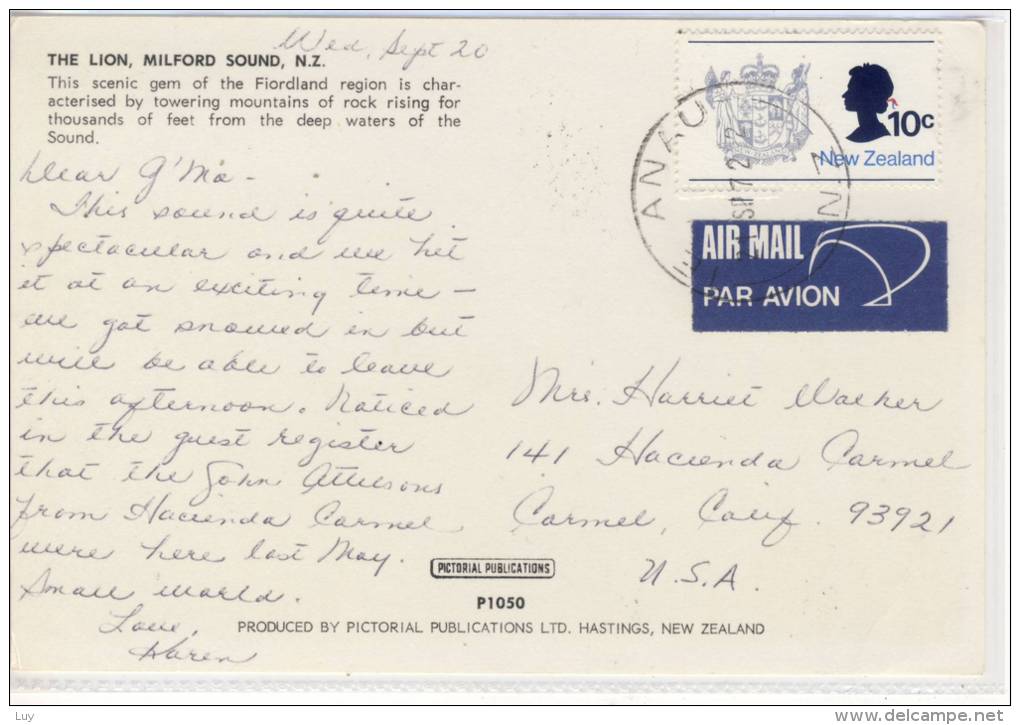 Wed, Sept 20
THE LION, MILFORD SOUND, N.Z.
This scenic gem of the Fiordland region is char-
acterised by towering mountains of rock rising for
thousands of feet from the deep waters of the
Sound.
Dear G'Ma -
This sound is quite
spectacular and we hit
it at an exciting time -
we got snowed in but
will be able to leave
this afternoon. Noticed
in the guest register
that the John
from Hacienda Carmel
were here last May.
Small world.
Love,
Karen
10c
New Zealand
ANAU
SP 72
N.Z
AIR MAIL
PAR AVION
Mrs. Harriet Walker
141 Hacienda Carmel
Carmel, Calif. 93921
U.S.A.
PICTORIAL PUBLICATIONS
P1050
PRODUCED BY PICTORIAL PUBLICATIONS LTD. HASTINGS, NEW ZEALAND
Luy
delcampe.net